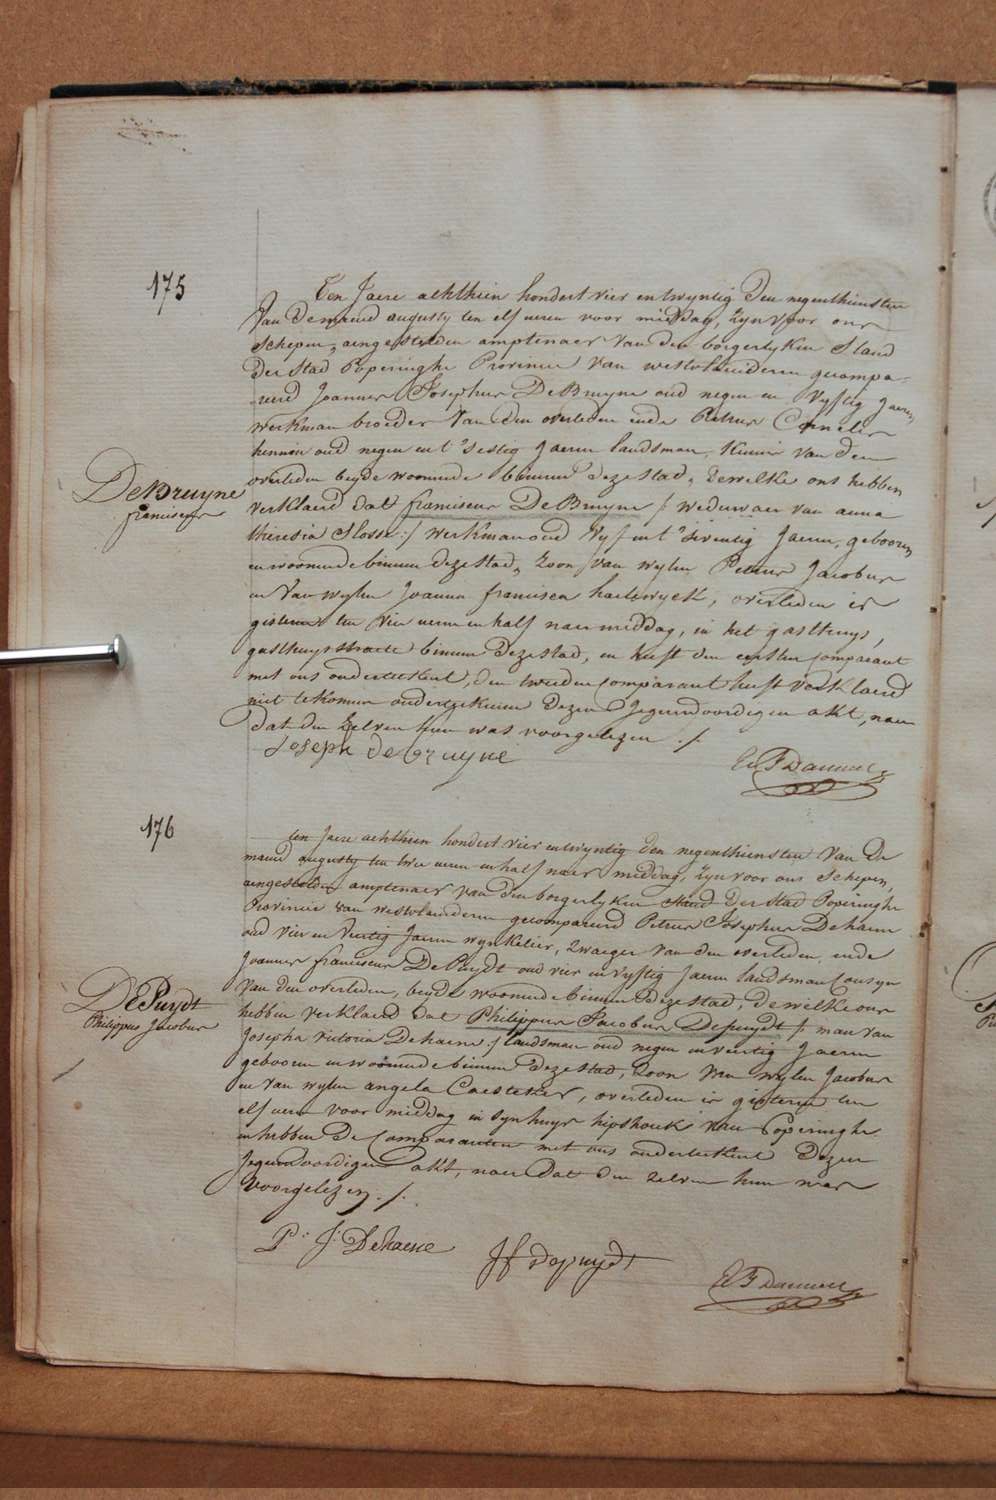 175
Ten Jaere achthien hondert vier entwyntig den negenthiensten
Van de maend augusty ten elf ueren voor middag, zyn voor ons
Schepen, aengestelden amptenaer van den borgerlyken Stand
der Stad Poperinghe Provincie van westvlaenderen gecompa-
-reerd Joannes Josephus DeBruyne oud negen en vyftig Jaeren
werkman broeder van den overleden ende Petrus Cornelis
oud negen ent 'sestig Jaeren landsman, kennis van den
overleden beyde woonende binnen deze stad, dewelke ons hebben
verklaerd dat franciscus DeBruyne /: weduwaer van anna
theresia Slosse :/ werkman oud vyf ent 'seventig Jaeren, gebooren
en woonende binnen deze stad, Zoon van wylen Petrus Jacobus
en van wylen Joanna francisca, overleden is
gisteren ten vier ueren en half naer middag, in het gasthuys,
gasthuysstraete binnen deze stad, en heeft den eersten comparant
met ons onderteekent, den tweeden comparant heeft verklaerd
niet te konnen onderteekenen dezen Jegenwoordigen akt, naer
dat den zelven hun was voorgelezen ./.
DeBruyne
franciscus
Joseph debruyne
176
ten Jaere achthien hondert vier entwyntig den negenthiensten van de
maend augusty ten twee ueren en half naer middag, zyn voor ons Schepen,
aengestelden amptenaer van den borgerlyken Stand der Stad Poperinghe
Provincie van westvlaenderen gecompareerd Petrus Josephus Dehaene
oud vier en veertig Jaeren wynkelier, zwaeger van den overleden, ende
Joannes franciscus DePuydt oud vier en vyftig Jaeren landsman Cousyn
van den overleden, beyde woonende binnen deze stad, dewelke ons
hebben verklaerd dat Philippus Jacobus Depuydt /: man van
Josepha victoria Dehaene :/ landsman oud negen en veertig Jaeren
gebooren en woonende binnen deze stad, Zoon van wylen Jacobus
en van wylen angela Caesteker, overleden is gisteren ten
elf ueren voor middag in syn huys hipshoek van Poperinghe
en hebben de Comparanten met ons onderteekent dezen
Jegenwoordigen akt, naer dat den zelven hun was
voorgelezen ./.
DEPuydt
Philippus Jacobus
P: J: Dehaene
JF depuydt